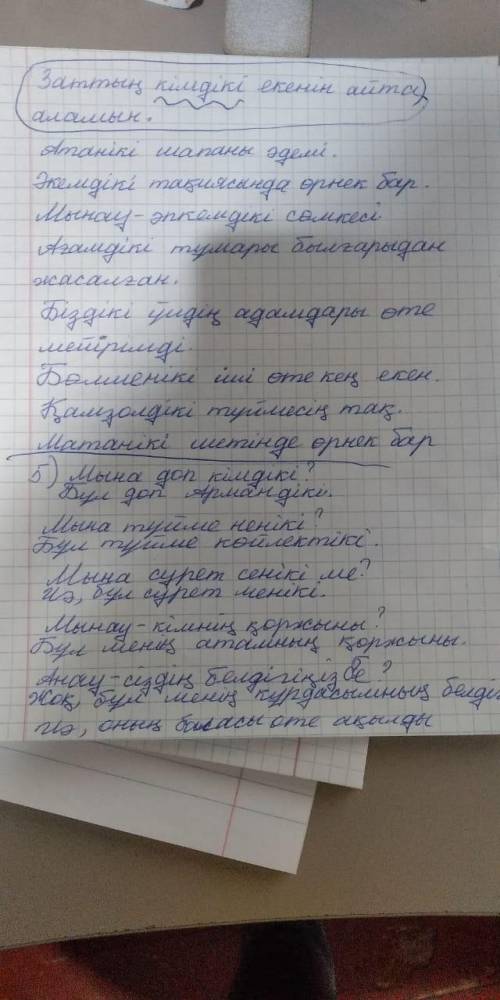 Заттың кімдікі екенін айта
аламын.
Атанікі шапаны әдемі.
Әкемдікі тақиясында өрнек бар.
Мынау-әпкемдікі сөмкесі
Ағамдікі тұмары былғарыдан
жасалған.
Біздікі үйдің адамдары өте
мейірімді.
Бөлменікі іші өте кең екен.
Қамзолдікі түймесің тақ.
Матанікі шетінде өрнек бар
5) Мына доп кімдікі?
Бұл доп Армандікі.
Мына түйме ненікі?
Бұл түйме көйлектікі.
Мына сурет сенікі ме?
Иә, бұл сурет менікі.
Мынау-кімнің қоржыны?
Бұл менің атамның қоржыны.
Анау-сіздің белдігіңіз бе?
Жоқ, бұл менің құрдасымның
Иә, оның баласы өте ақылды